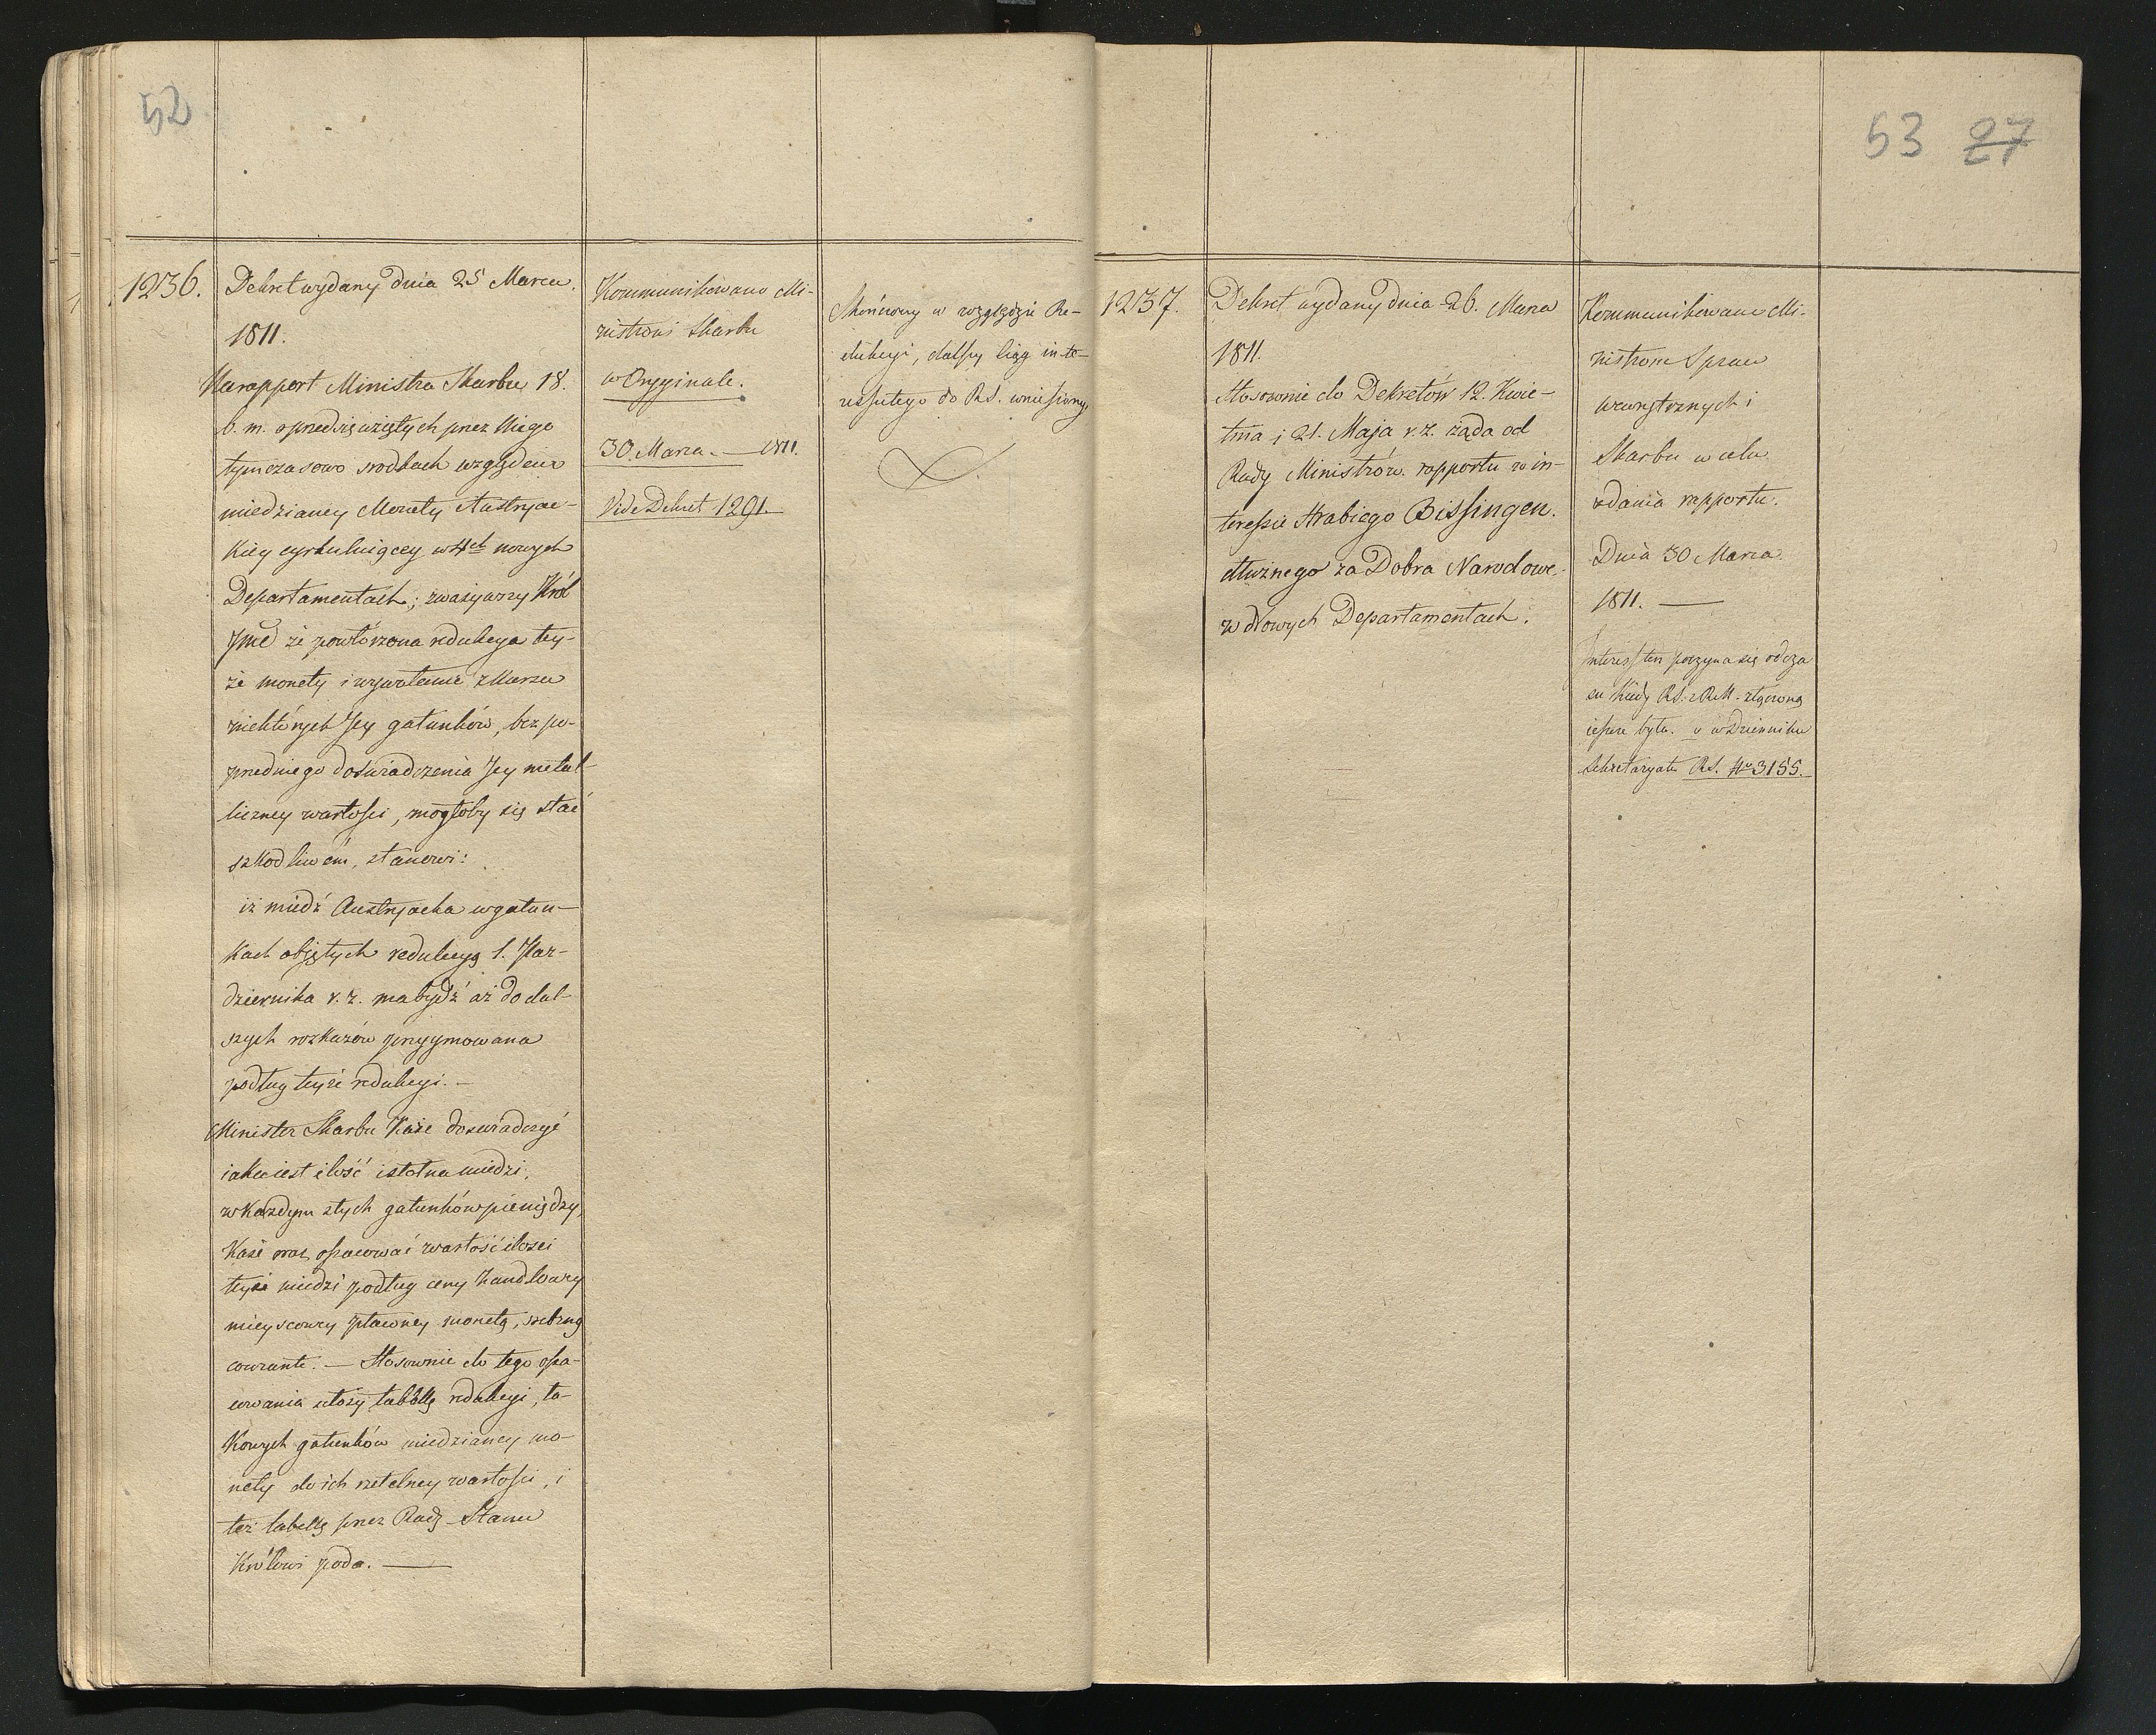 52
1236.
Dekret wydany dnia 25 Marca.
1811.
Na rapport Ministra Skarbu 18.
b. m. o przedsięwziętych przez Niego
tymczasowo srodkach względem
miedzianey Monety Austryac-
kiey cyrkuluiącey w 4ch nowych
Departamentach; zważywszy Król
Jmć że powtórzona redukcya tey-
że monety i wywołanie z Kursu
niektórych Jey gatunków, bez po-
przedniego doświadczenia Jey metal-
liczney wartości, mogłoby się stać
szkodliwém, stanowi:
iż miedź Austryacka w gatun-
kach objętych redukcyą 1. Paz-
dziernika r. z. ma bydź aż do dal-
szych rozkazów przyymowana
podług teyże redukcyi. —
Minister Skarbu każe doświadczyć
iaka iest ilość istotna miedzi,
w każdym z tych gatunków pieniędzy,
każe oraz oszacować wartość ilości
teyże miedzi podług ceny handlowey
mieyscowey płacowney monetą, srebrną
courante. — Stosownie do tego osza-
cowania złoży tabellę redukcyi, ta-
kowych gatunków miedzianey mo-
nety do ich rzetelney wartości, i
też tabellę przez Radę Stanu
Królowi poda. —
Kommunikowano Mi-
nistrowi Skarbu
w Oryginale.
30. Marca. — 1811.
Vide Dekret 1291
Skończony w względzie Re-
dukcyi, dalszy ciąg inte-
ressu tego do R.S. wniesiony,
53 27
1237.
Dekret wydany dnia 26. Marca
1811.
Stosownie do Dekretów 12. Kwie-
tnia i 21. Maja r. z. żąda od
Rady Ministrów rapportu w in-
teressie Hrabiego Bissingen
dłużnego za Dobra Narodowe
w Nowych Departamentach.
Kommunikowano Mi-
nistrom Spraw
wewnętrznych i
Skarbu w celu
zdania rapportu.
Dnia 30 Marca
1811. —
Interess ten poczyna się od cza
su kiedy R.S. z R.M. złączona
ieszcze była. v w Dzienniku
Sekretaryatu R.S. No 3155. —